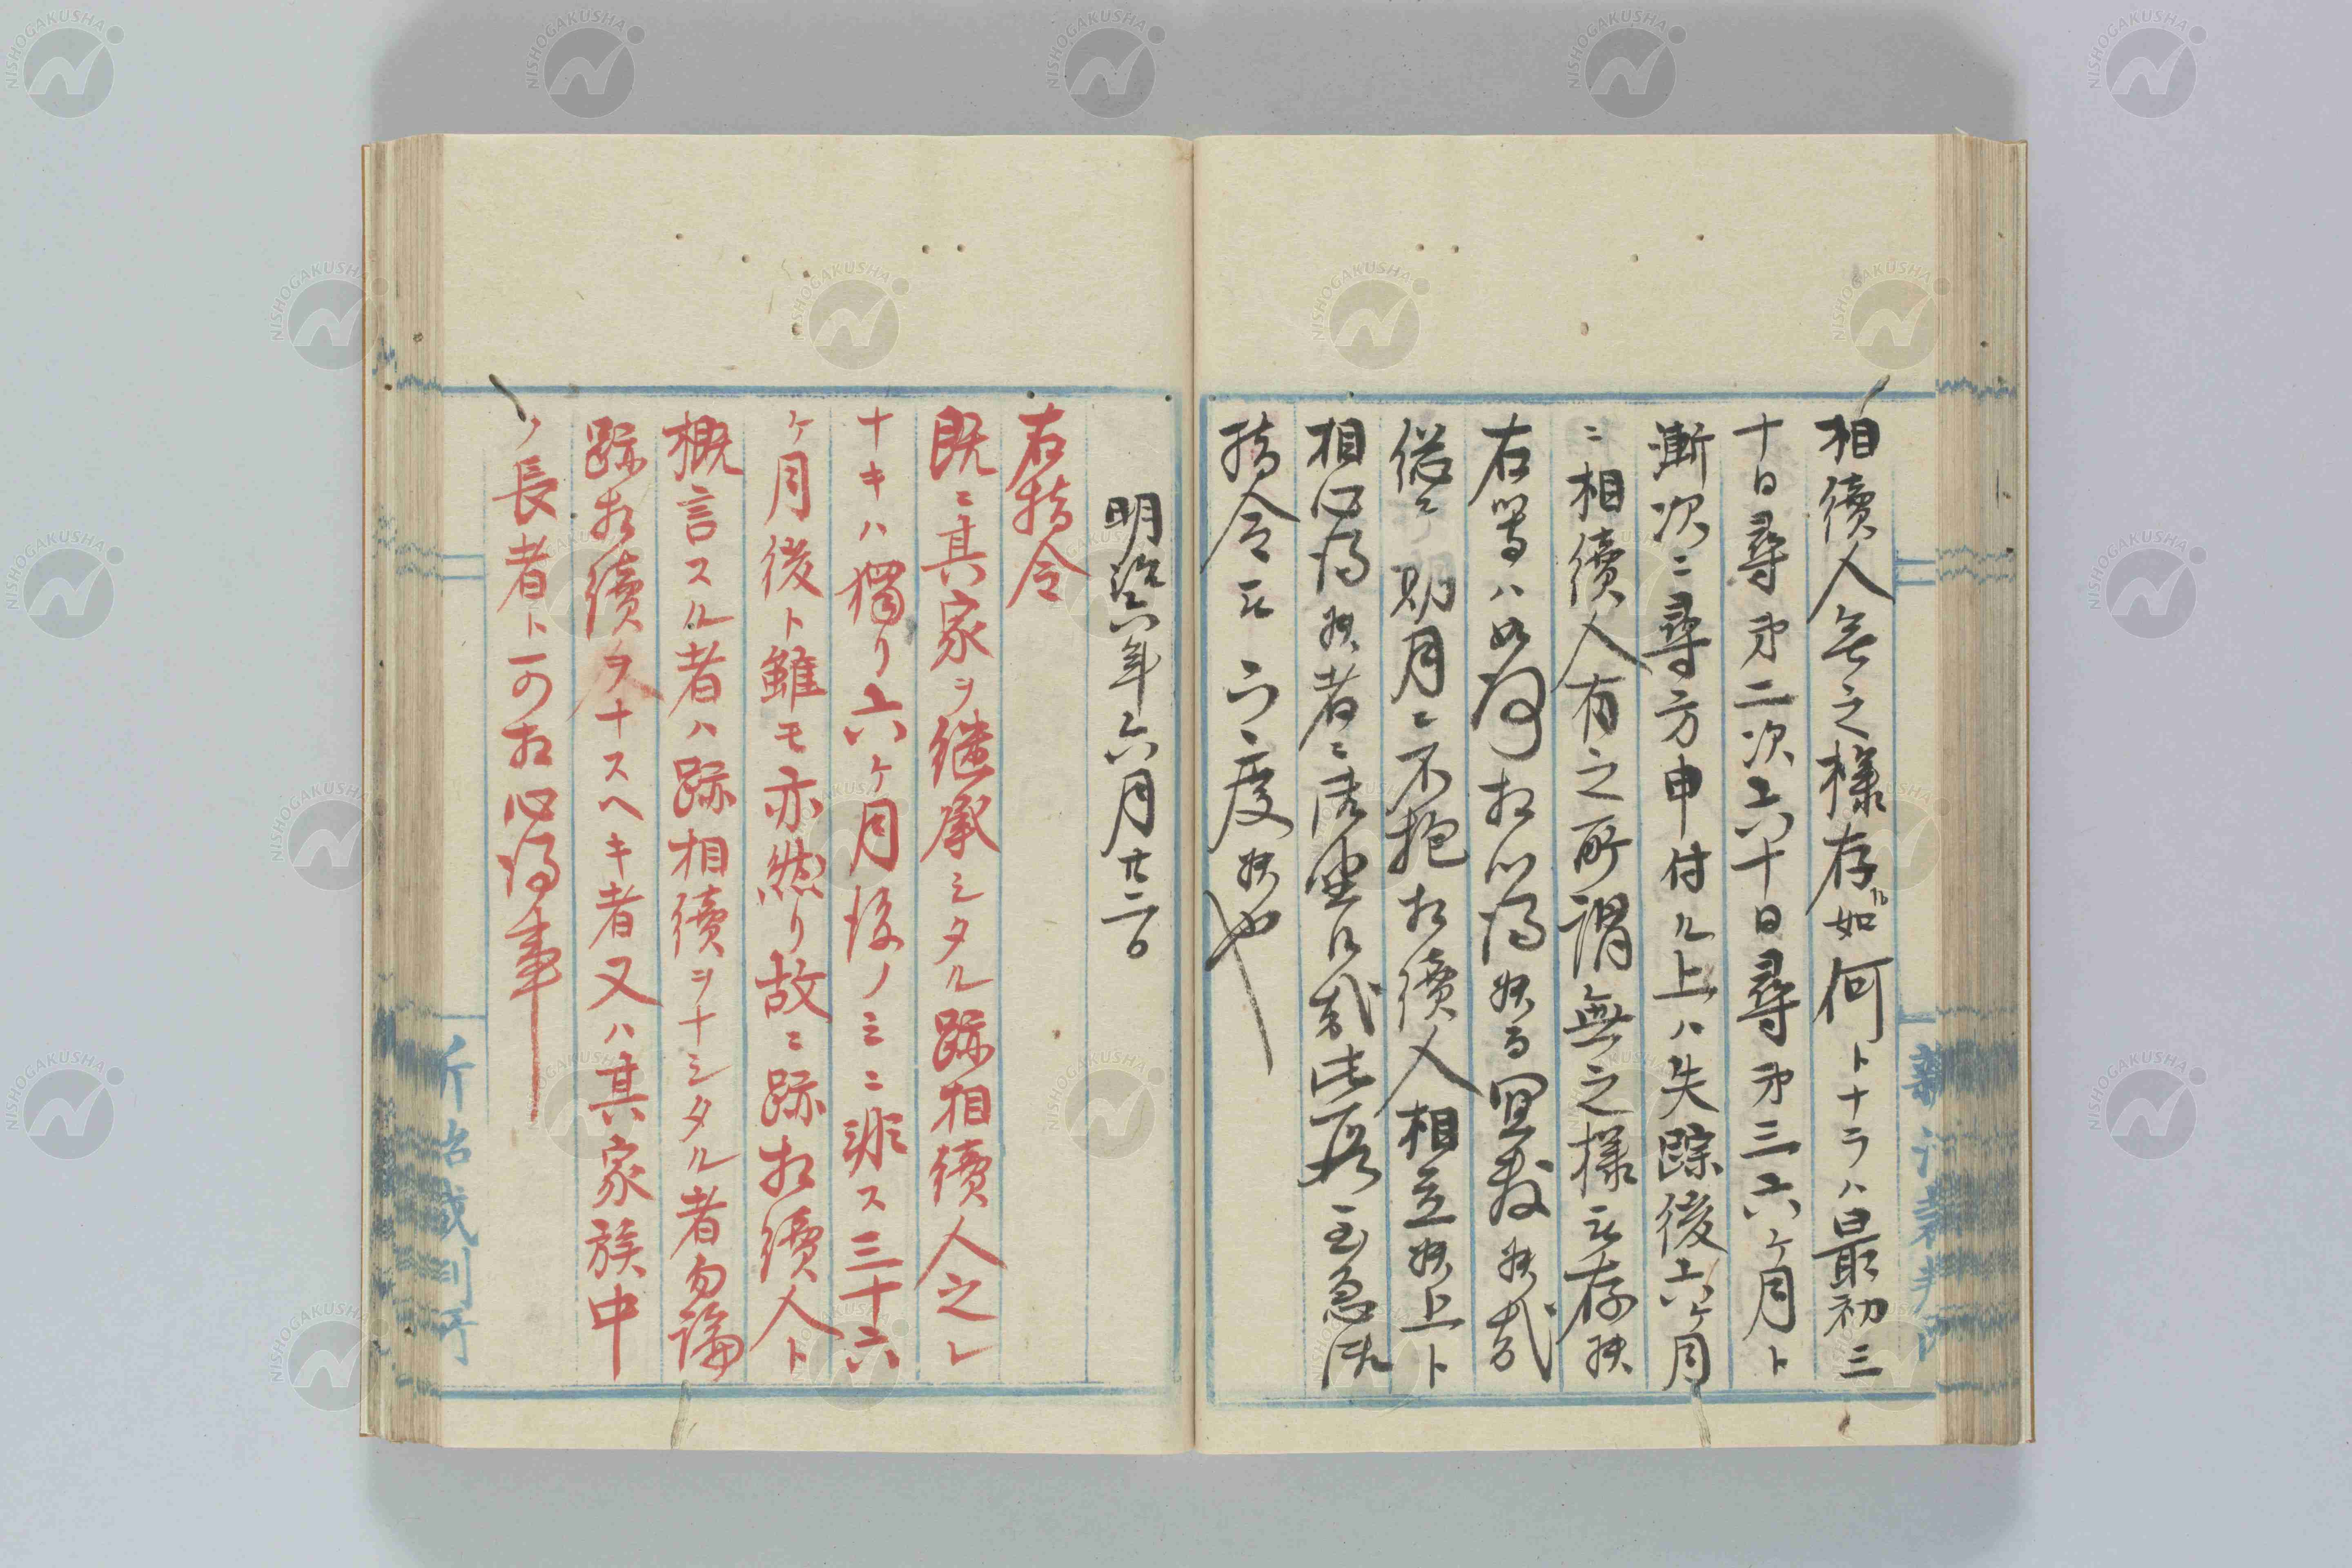 相續人無之樣存ル如何トナラハ最初三
十日尋第二次六十日尋第三六ケ月ト
漸次ニ尋方申付ル上ハ失踪後六ケ月
ニ相續人有之所謂無之樣ニ存候
右等ハ如何相心得候而宜敷候哉
縦令期月ニ不抱相續人相立候上ト
相心得候者ニ
至急御
指令
度候也
明治六年六月廿二日
右指令
既ニ其家ヲ継承シタル跡相續人之レ
ナキハ獨リ六ケ月後ノミニ非ス三十六
ケ月後ト雖モ亦然リ故ニ跡相續人ト
概言スル者ハ跡相續ヲナシタル者勿論
跡相續ヲナスヘキ者又ハ其家族中
ノ長者ト可相心得事
NISHOGAKUSHA